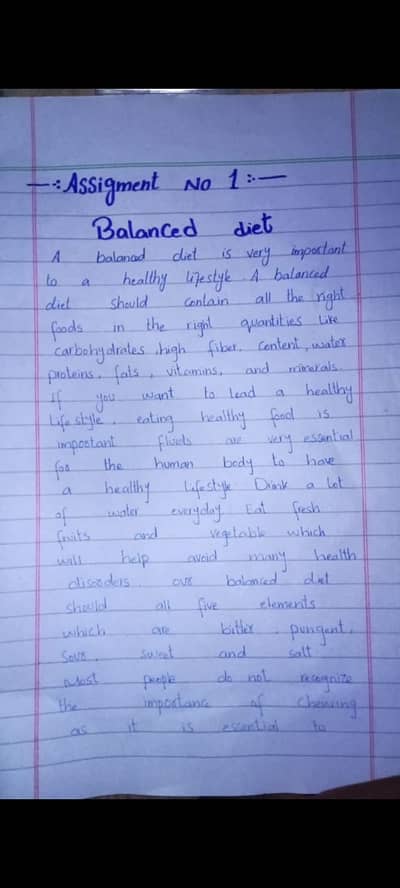 —: Assigment No 1 :—
Balanced diet
A balanced diet is very important
to a healthy lifestyle. A balanced
diet should contain all the right
foods in the right quantities like
carbohydrates, high fiber, content, water
proteins, fats, vitamins, and minerals.
If you want to lead a healthy
life style, eating healthy food is
important fluids are very essential
for the human body to have
a healthy lifestyle Drink a lot
of water everyday Eat fresh
fruits and vegetable which
will help avoid many health
disorders. our balanced diet
should all five elements
which are bitter, pungent,
Sour, sweet and salt
Most people do not recognize
the importance of chewing
as it is essential to